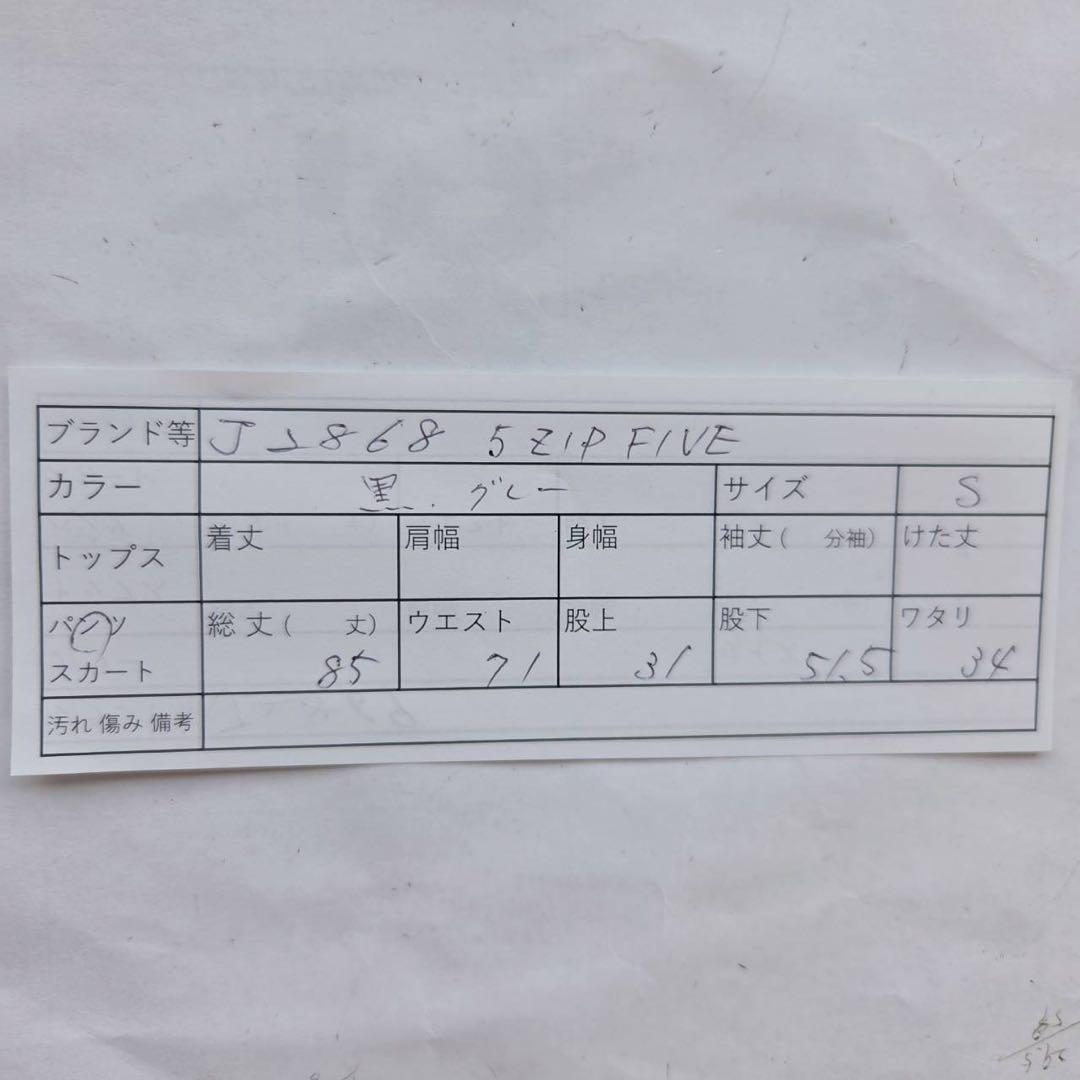 ブランド等 J2868 5 ZIP FIVE
カラー 黒.グレー サイズ S
トップス 着丈 肩幅 身幅 袖丈( 分袖) けた丈
パンツ 総丈( 丈) ウエスト 股上 股下 ワタリ
スカート 85 71 31 51.5 34
汚れ 傷み 備考